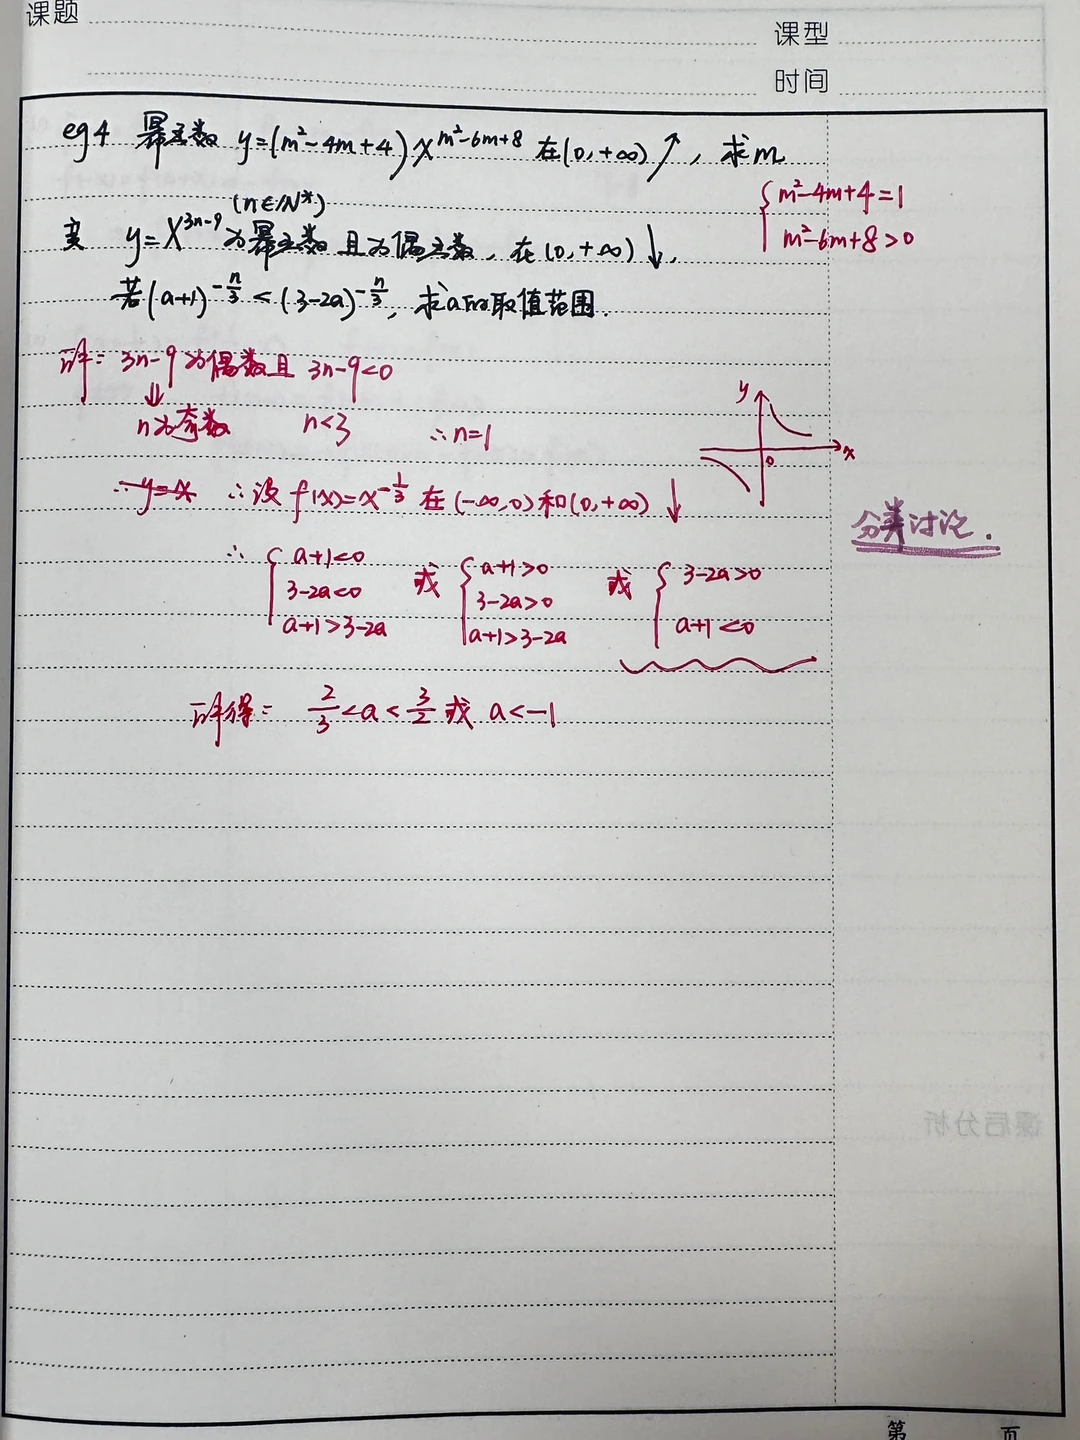 课题
课型
时间
eg4 幂函数 y=(m²-4m+4)x^{m²-6m+8} 在(0,+∞)↗, 求m
{ m²-4m+4=1
m²-6m+8>0
(n∈N*)
变 y=x^{3n-9}为幂函数且为偶函数, 在(0,+∞)↓,
若(a+1)^{-n/3}<(3-2a)^{-n/3}, 求a的取值范围.
解: 3n-9为偶数且 3n-9<0
⇓
n为奇数 n<3 ∴n=1
y
x
0
∴y=x ∴设f(x)=x^{-1/3}在(-∞,0)和(0,+∞)↓
分类讨论.
∴ { a+1<0 或 { a+1>0 或 { 3-2a>0
3-2a<0 3-2a>0
a+1>3-2a a+1>3-2a a+1<0
解得: 2/3<a<3/2 或 a<-1
课后分析
第 页